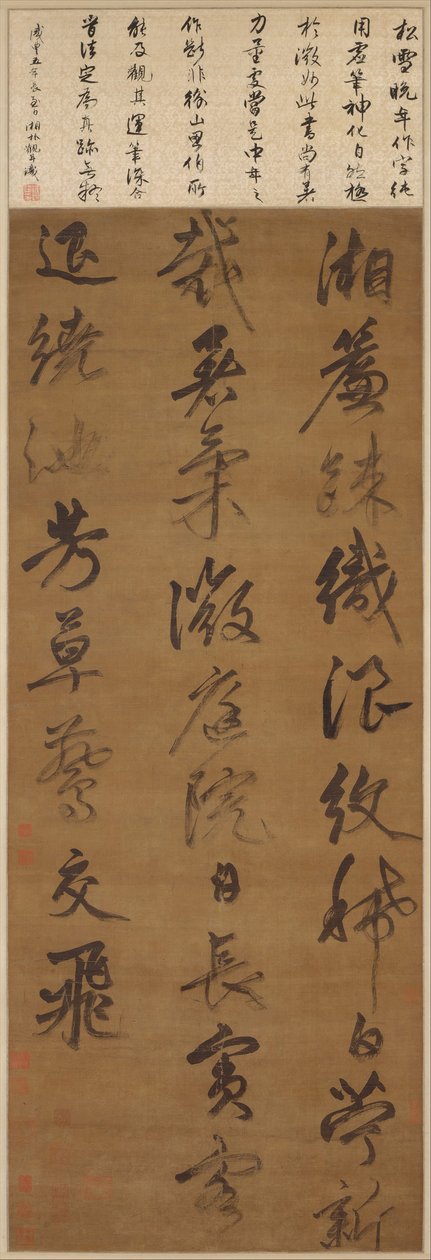 松雪晚年作字純
用虛筆神化自然極
於微妙此書尚有著
力量處當是中年之
作斷非山伯所
能及觀其運筆深合
晉法定為真跡無疑
咸豐五年長至日湘林觀並識
湘簾疎織浪紋稀白苧新
裁暑氣微庭院日長賓客
退繞池芳草鷰交飛